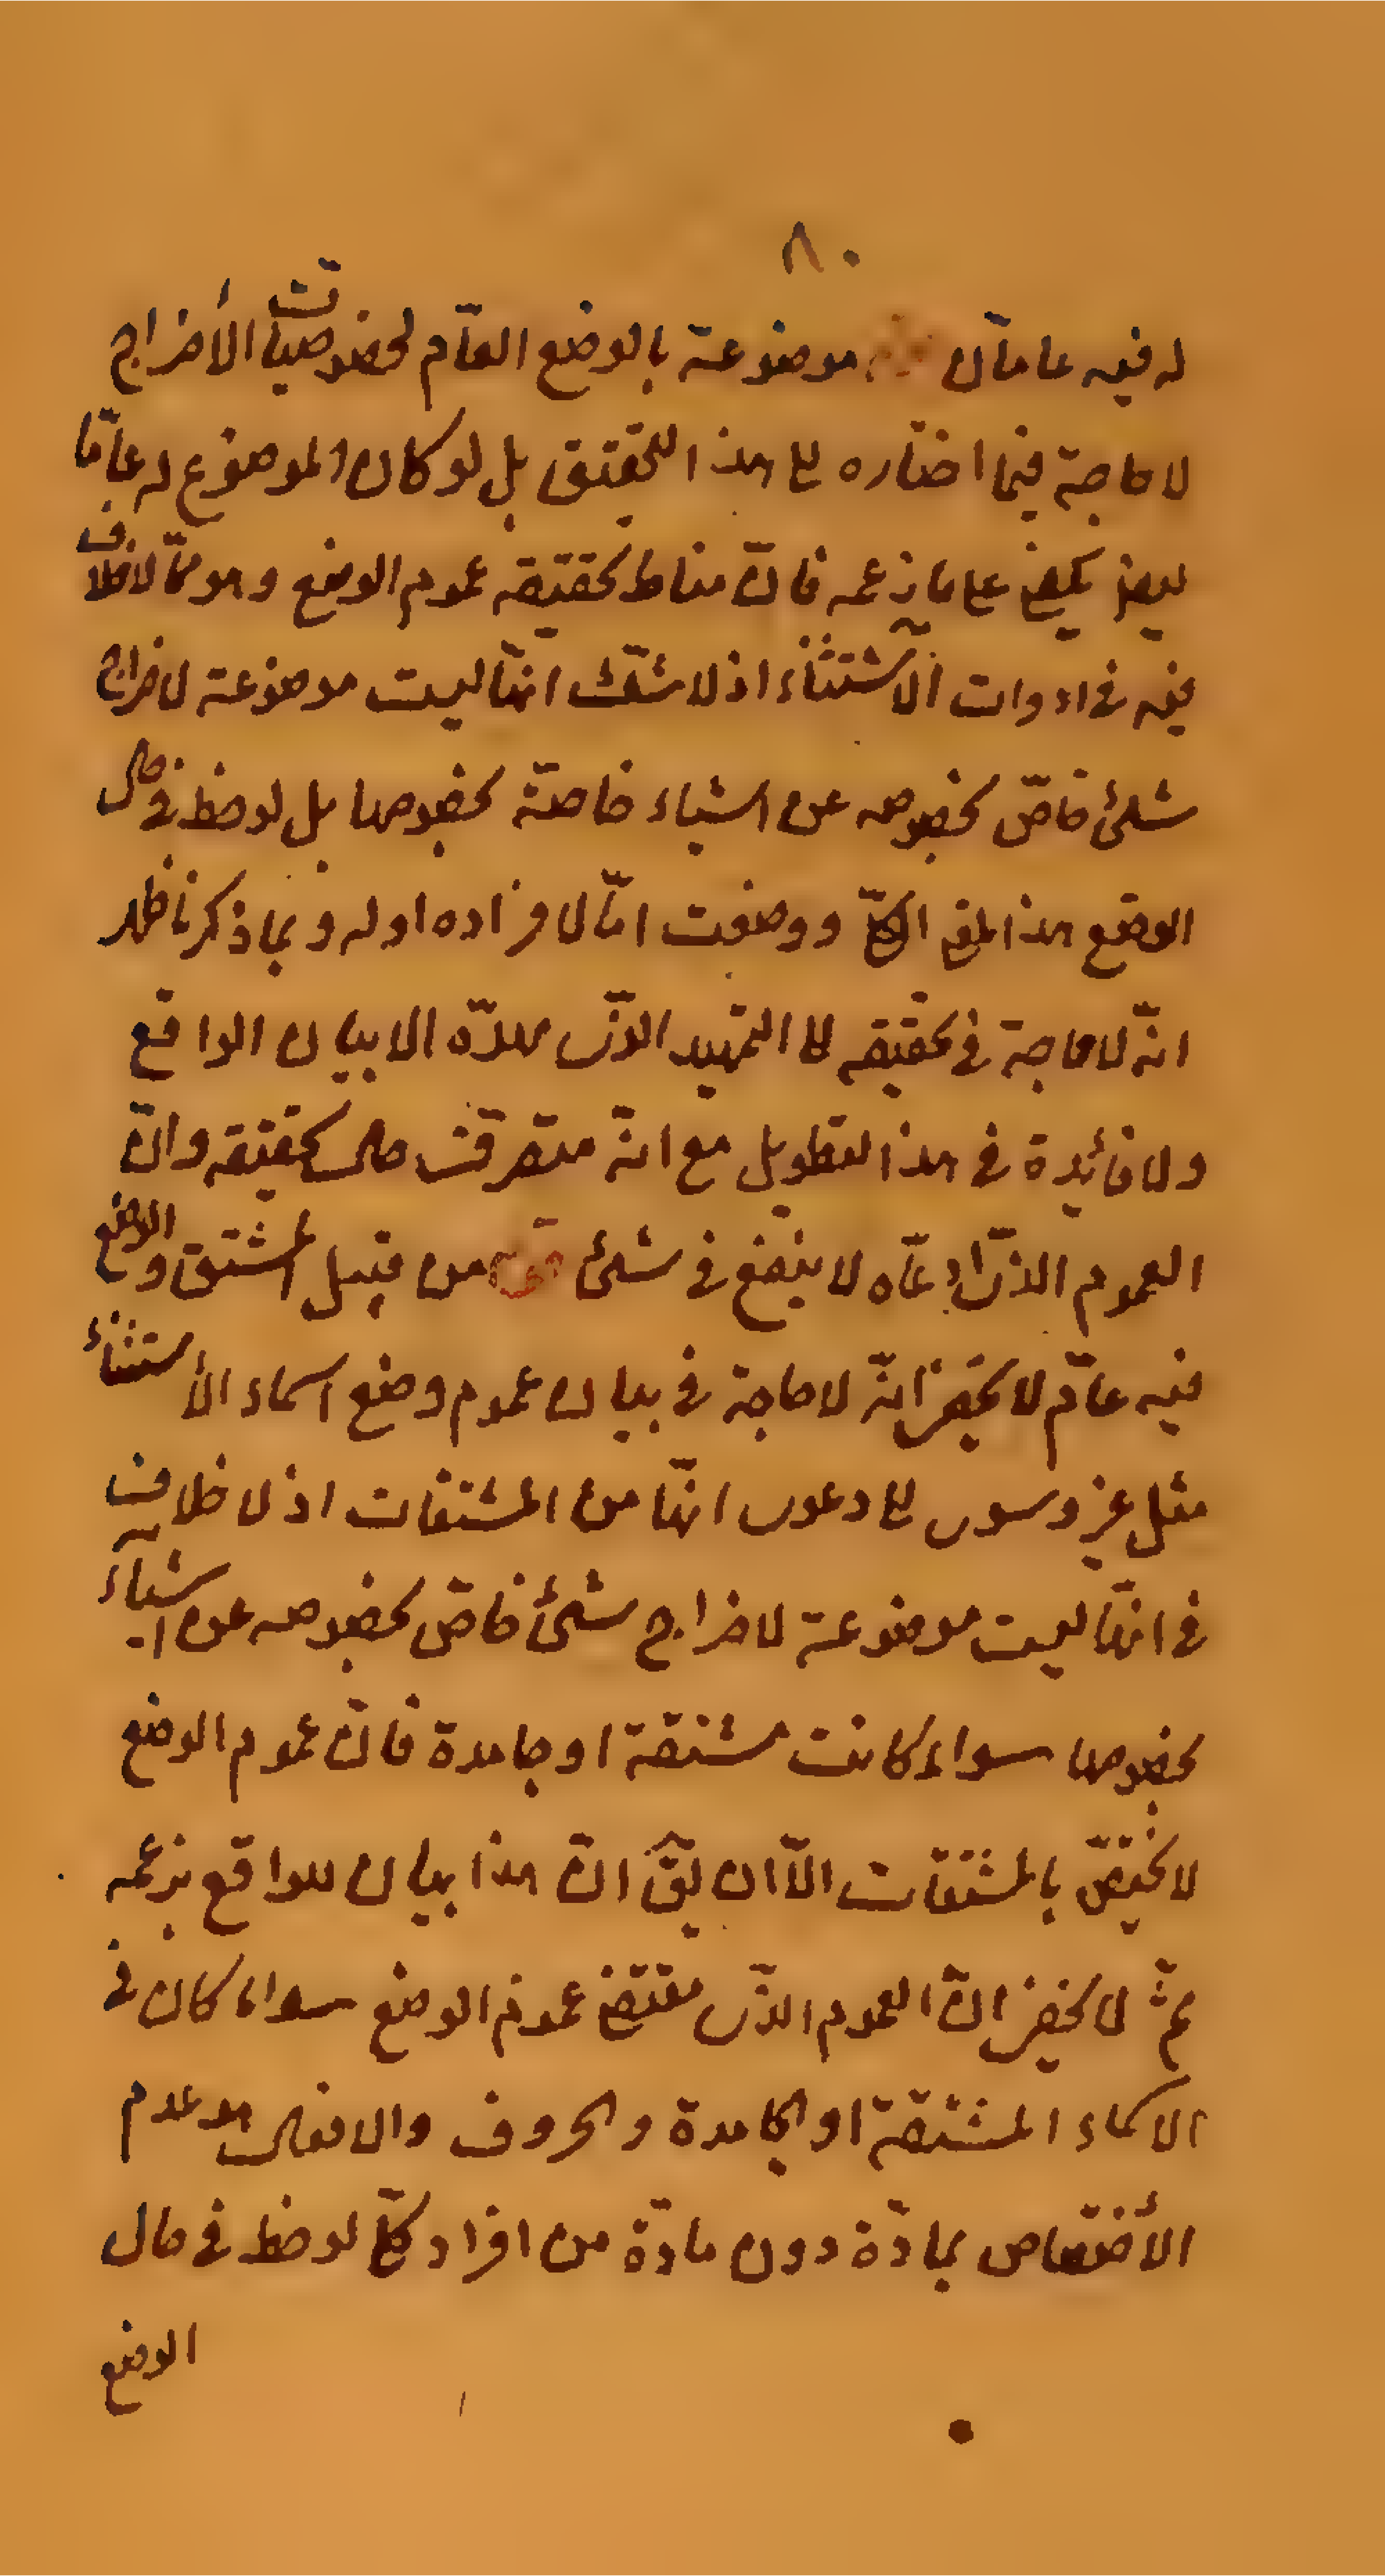 ٨٠
له فيه عامان موضوعة بالوضع العامّ لخصوصيات الأخراج
لا حاجة فيما اختاره الى هذا التحقيق بل لو كان الموضوع له عامّا
ايضا يكفى على ما زعمه فانّ مناط تحقيقه عموم الوضع وهو ممّا لا خلاف
فيه فى ادوات الاستثناء اذ لا شكّ انّها ليست موضوعة لاخراج
شىء خاصّ بخصوصه عن اشياء خاصّة بخصوصها بل لوحظ فى حال
الوضع هذا المفهوم الكلّى ووضعت امّا لافراده او له وبما ذكرنا ظهر
انّه لا حاجة فى تحقيقه الى التمهيد الذّى مهّده الا بيان الواقع
ولا فائدة فى هذا التطويل مع انّه متفرّق على تحقيقه وانّ
العموم الذّى ادّعاه لا ينفع فى شىء من قبيل المشتق والوضع
فيه عامّ لا يخفى انّه لا حاجة فى بيان عموم وضع اسماء الأستثناء
مثل غير وسوى الى دعوى انّها من المشتقات اذ لا خلاف
فى انّها ليست موضوعة لاخراج شىء خاصّ بخصوصه عن اشياء
بخصوصها سواء كانت مشتقّة او جامدة فانّ عموم الوضع
لا يختصّ بالمشتقّات الّا ان يقّ انّ هذا بيان للواقع بزعمه
ثمّ لا يخفى انّ العموم الذّى مقتضى عموم الوضع سواء كان فى
الاسماء المشتقّة او الجامدة والحروف والافعال هو عدم
الأختصاص بمادّة دون مادّة من افراد كلّى لوحظ فى حال
الوضع